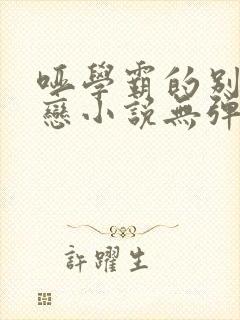 哑學霸的别
戀小説無彈
許躍生